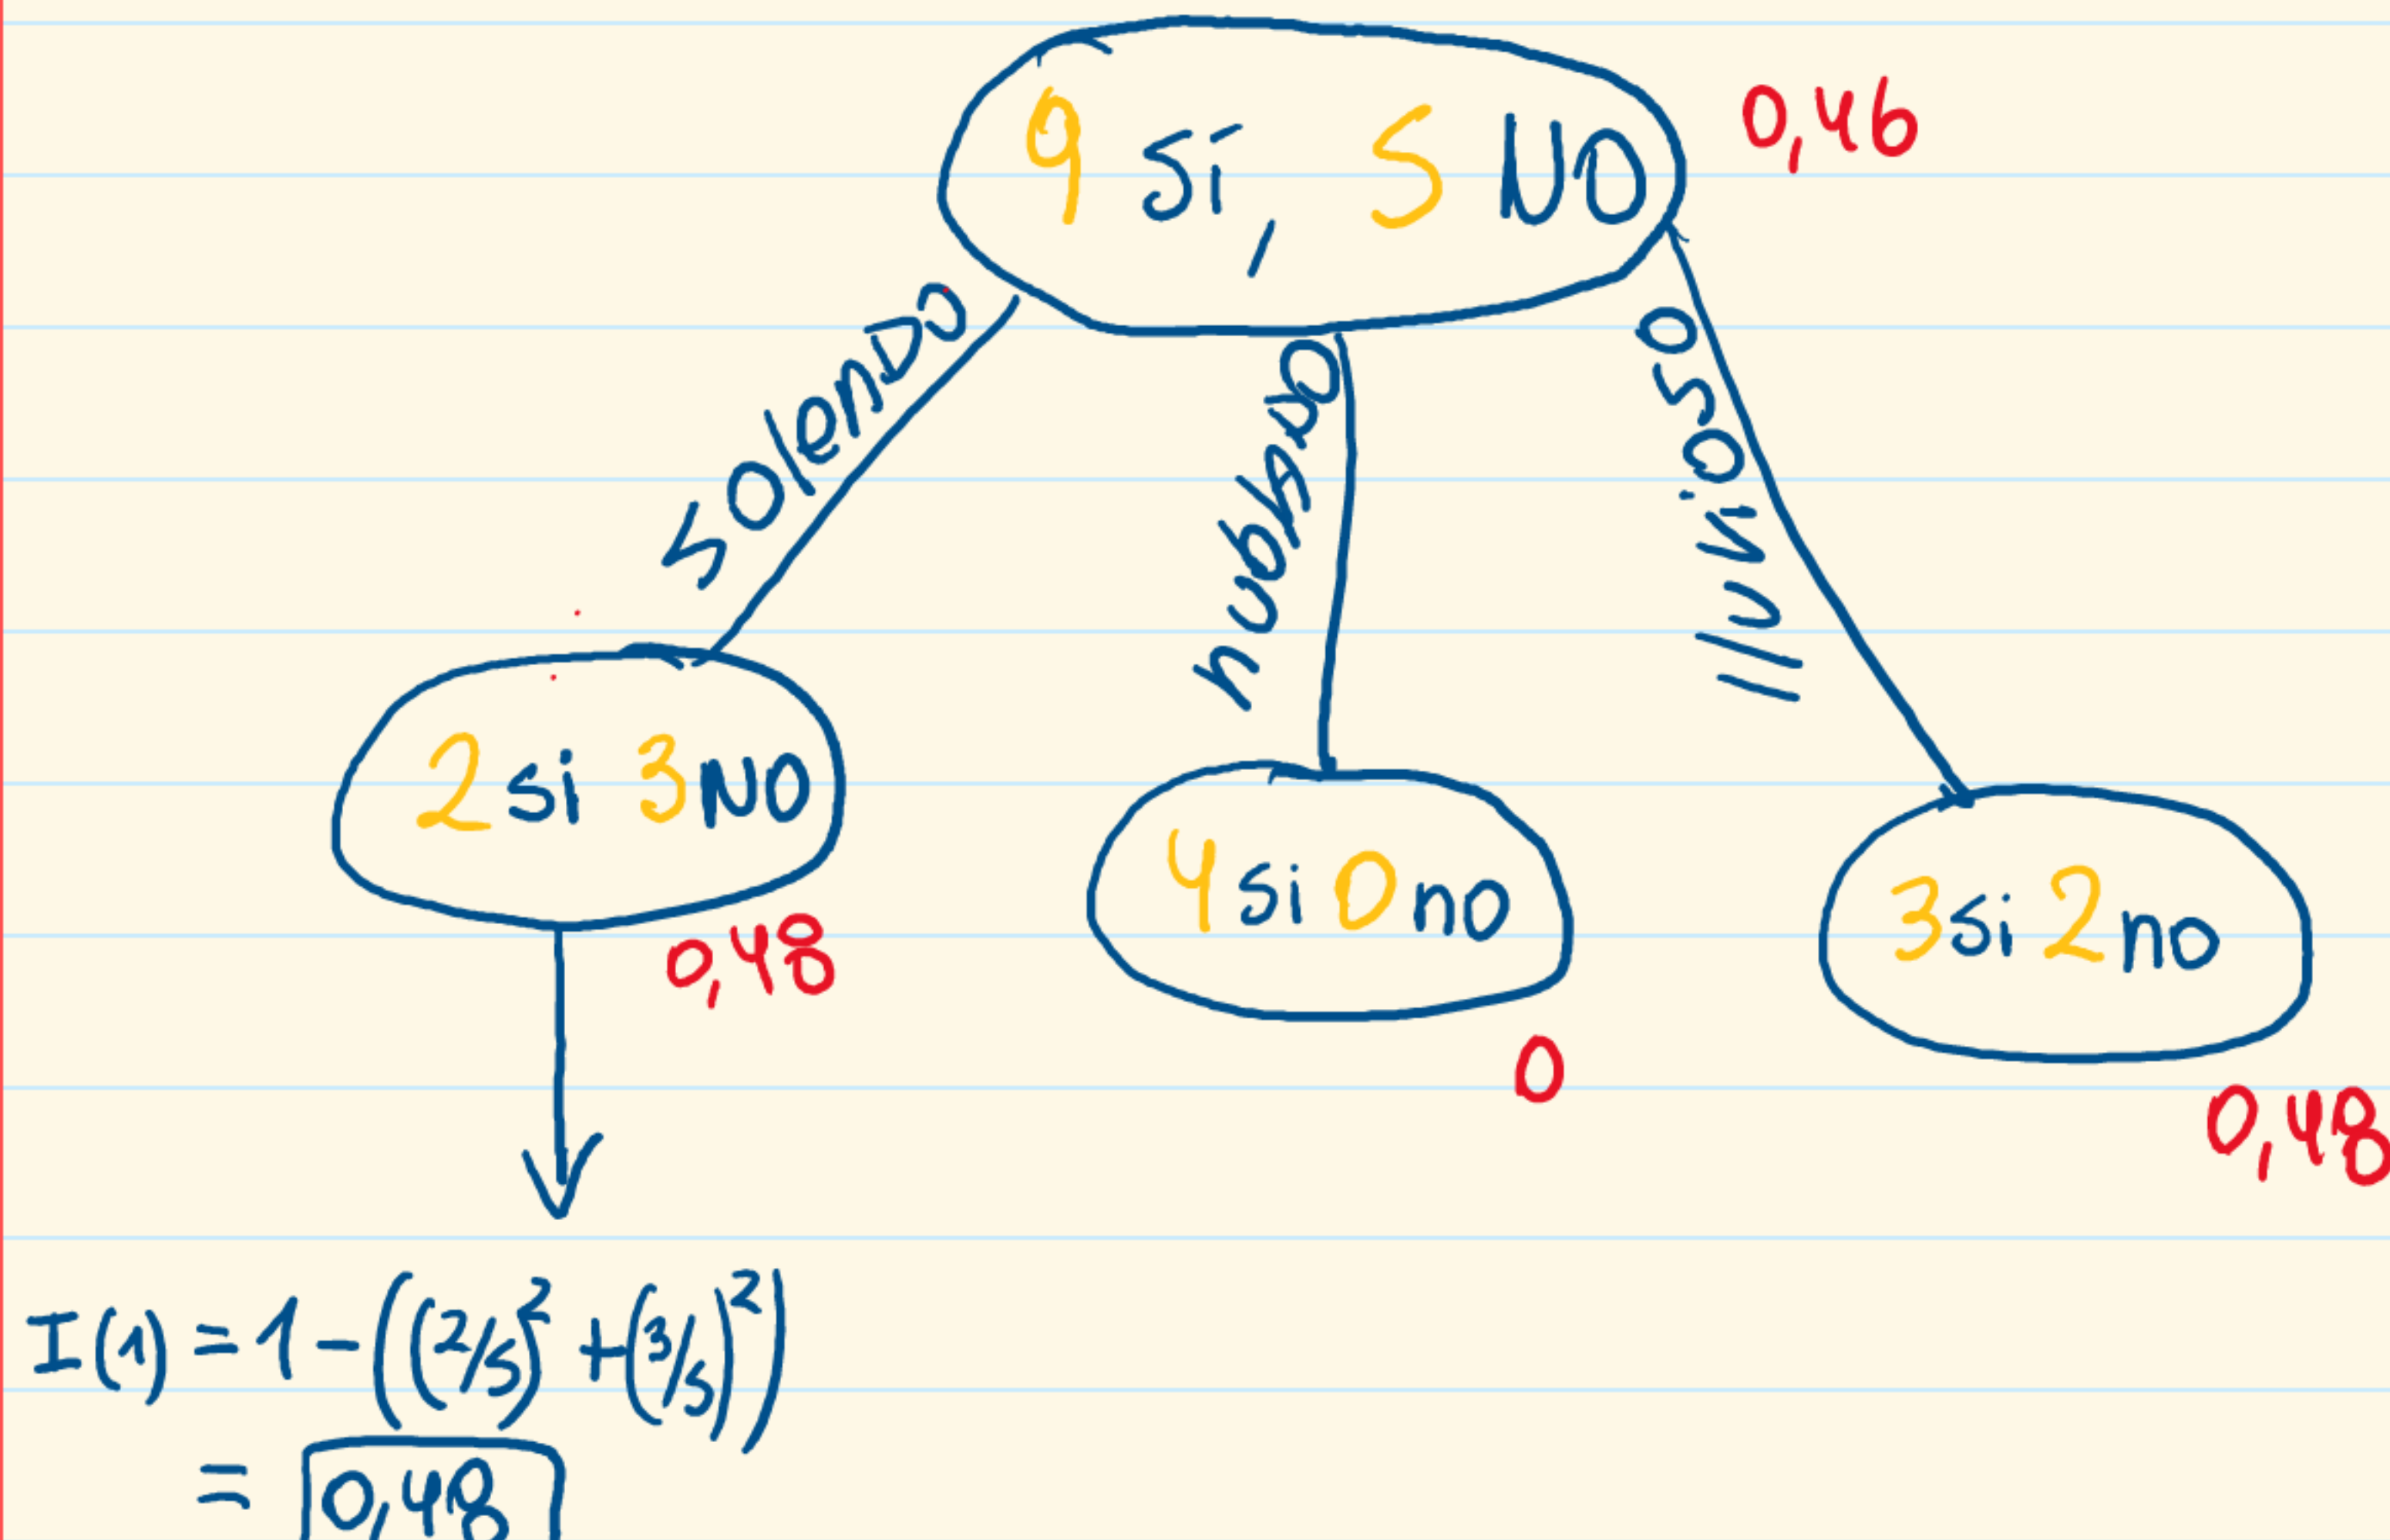 9 Sí, 5 NO
0,46
solenDo
nublADO
lluvioso
2 si 3 NO
0,48
4 si 0 no
0
3 si 2 no
0,48
I(1) = 1 - ((2/5)² + (3/5)²)
= 0,48